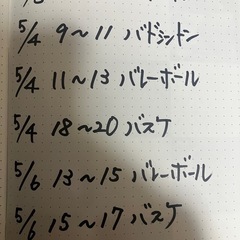 5/4 9～11 バドミントン
5/4 11～13 バレーボール
5/4 18～20 バスケ
5/6 13～15 バレーボール
5/6 15～17 バスケ